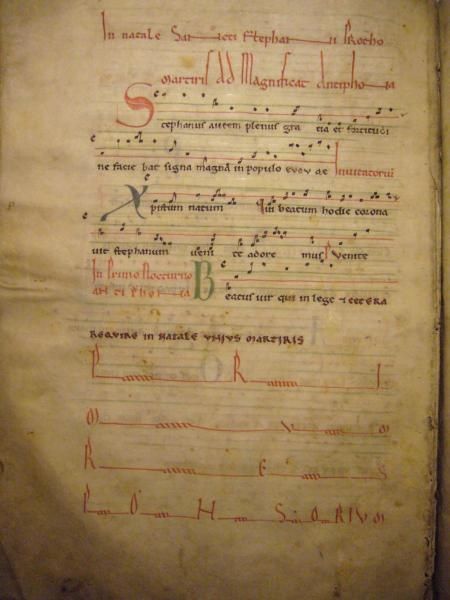 In natale Sancti Stephani Protho
martiris Ad Magnificat Antiphona
Stephanus autem plenus gra tia et fortitudi
ne facie bat signa magna in populo euouae Invitatorum
Xpistum natum Qui beatum hodie corona
vit stephanum veni te adore mus Venite
In Primo Nocturno
antiphona Beatus vir qui in lege et cetera
REQUIRE IN NATALE UNIUS MARTIRIS
P R I
M V M
R E S
P O N S O R I V M